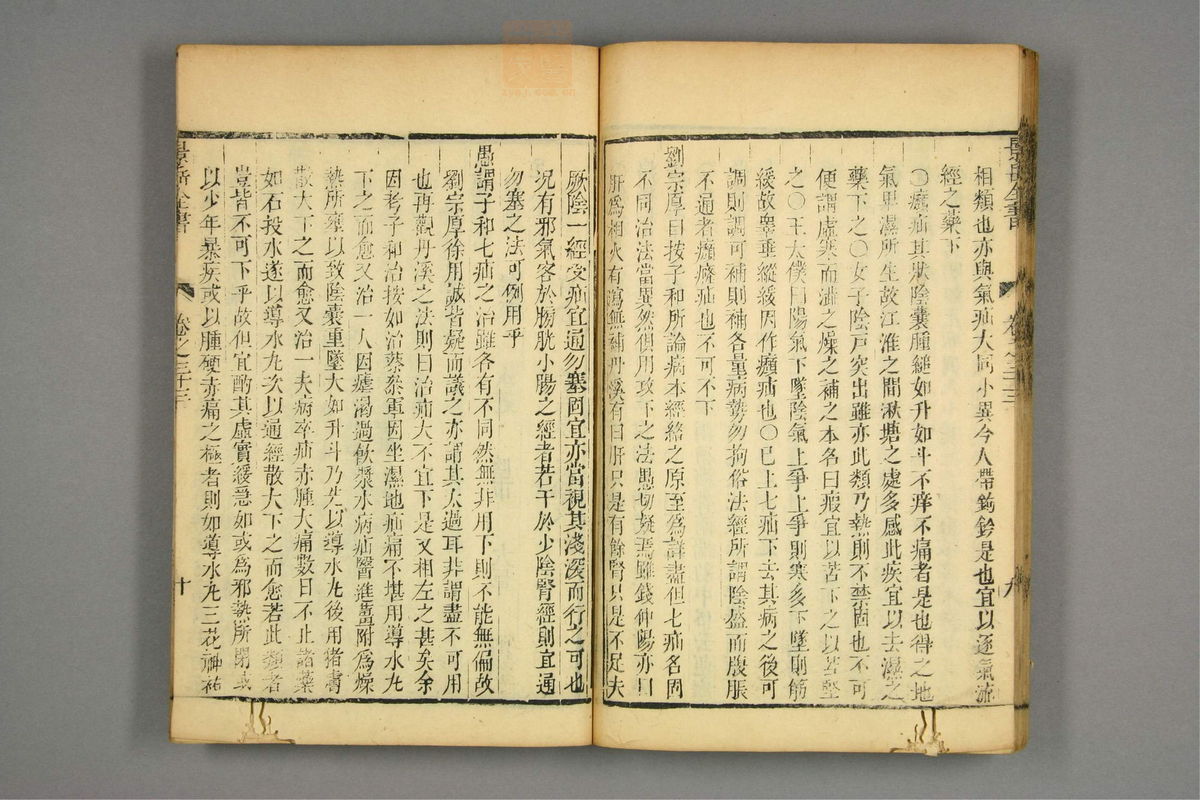 相類也亦與氣疝大同小異今人帶鈎鈐是也宜以逐氣流
經之藥下
〇㿗疝其狀陰囊腫縋如升如斗不痒不痛者是也得之地
氣卑濕所生故江淮之間湫塘之處多感此疾宜以去濕之
藥下之〇女子陰戸突出雖亦此類乃熱則不禁固也不可
便謂虛寒而澁之燥之補之本名曰瘕宜以苦下之以苦堅
之〇王太僕曰陽氣下墜陰氣上爭上爭則寒多下墜則筋
緩故睪垂縱緩因作㿗疝也〇已上七疝下去其病之後可
調則調可補則補各量病勢勿拘俗法經所謂陰盛而腹脹
不通者㿗癃疝也不可不下
劉宗厚曰按子和所論病本經絡之原至爲詳盡但七疝名固
不同治法當異然俱用攻下之法愚切疑焉雖錢仲陽亦曰
肝爲相火有瀉無補丹溪有曰肝只是有餘腎只是不足夫
厥陰一經受疝宜通勿塞固宜亦當視其淺深而行之可也
況有邪氣客於膀胱小腸之經者若干於少陰腎經則宜通
勿塞之法可例用乎
愚謂子和七疝之治雖各有不同然無非用下則不能無偏故
劉宗厚徐用誠皆疑而議之亦謂其太過耳非謂盡不可用
也再觀丹溪之法則曰治疝大不宜下是又相左之甚矣余
因考子和治按如治蔡參軍因坐濕地疝痛不堪用導水丸
下之而愈又治一人因瘧渴過飲漿水病疝醫進薑附爲燥
熱所壅以致陰囊重墜大如升斗乃先以導水丸後用猪腎
散大下之而愈又治一夫病卒疝赤腫大痛數日不止諸藥
如石投水遂以導水丸次以通經散大下之而愈若此類者
豈皆不可下乎故但宜酌其虛實緩急如或爲邪熱所閉或
以少年暴疾或以腫硬赤痛之極者則如導水丸三花神祐
景岳全書
卷之三十三
十